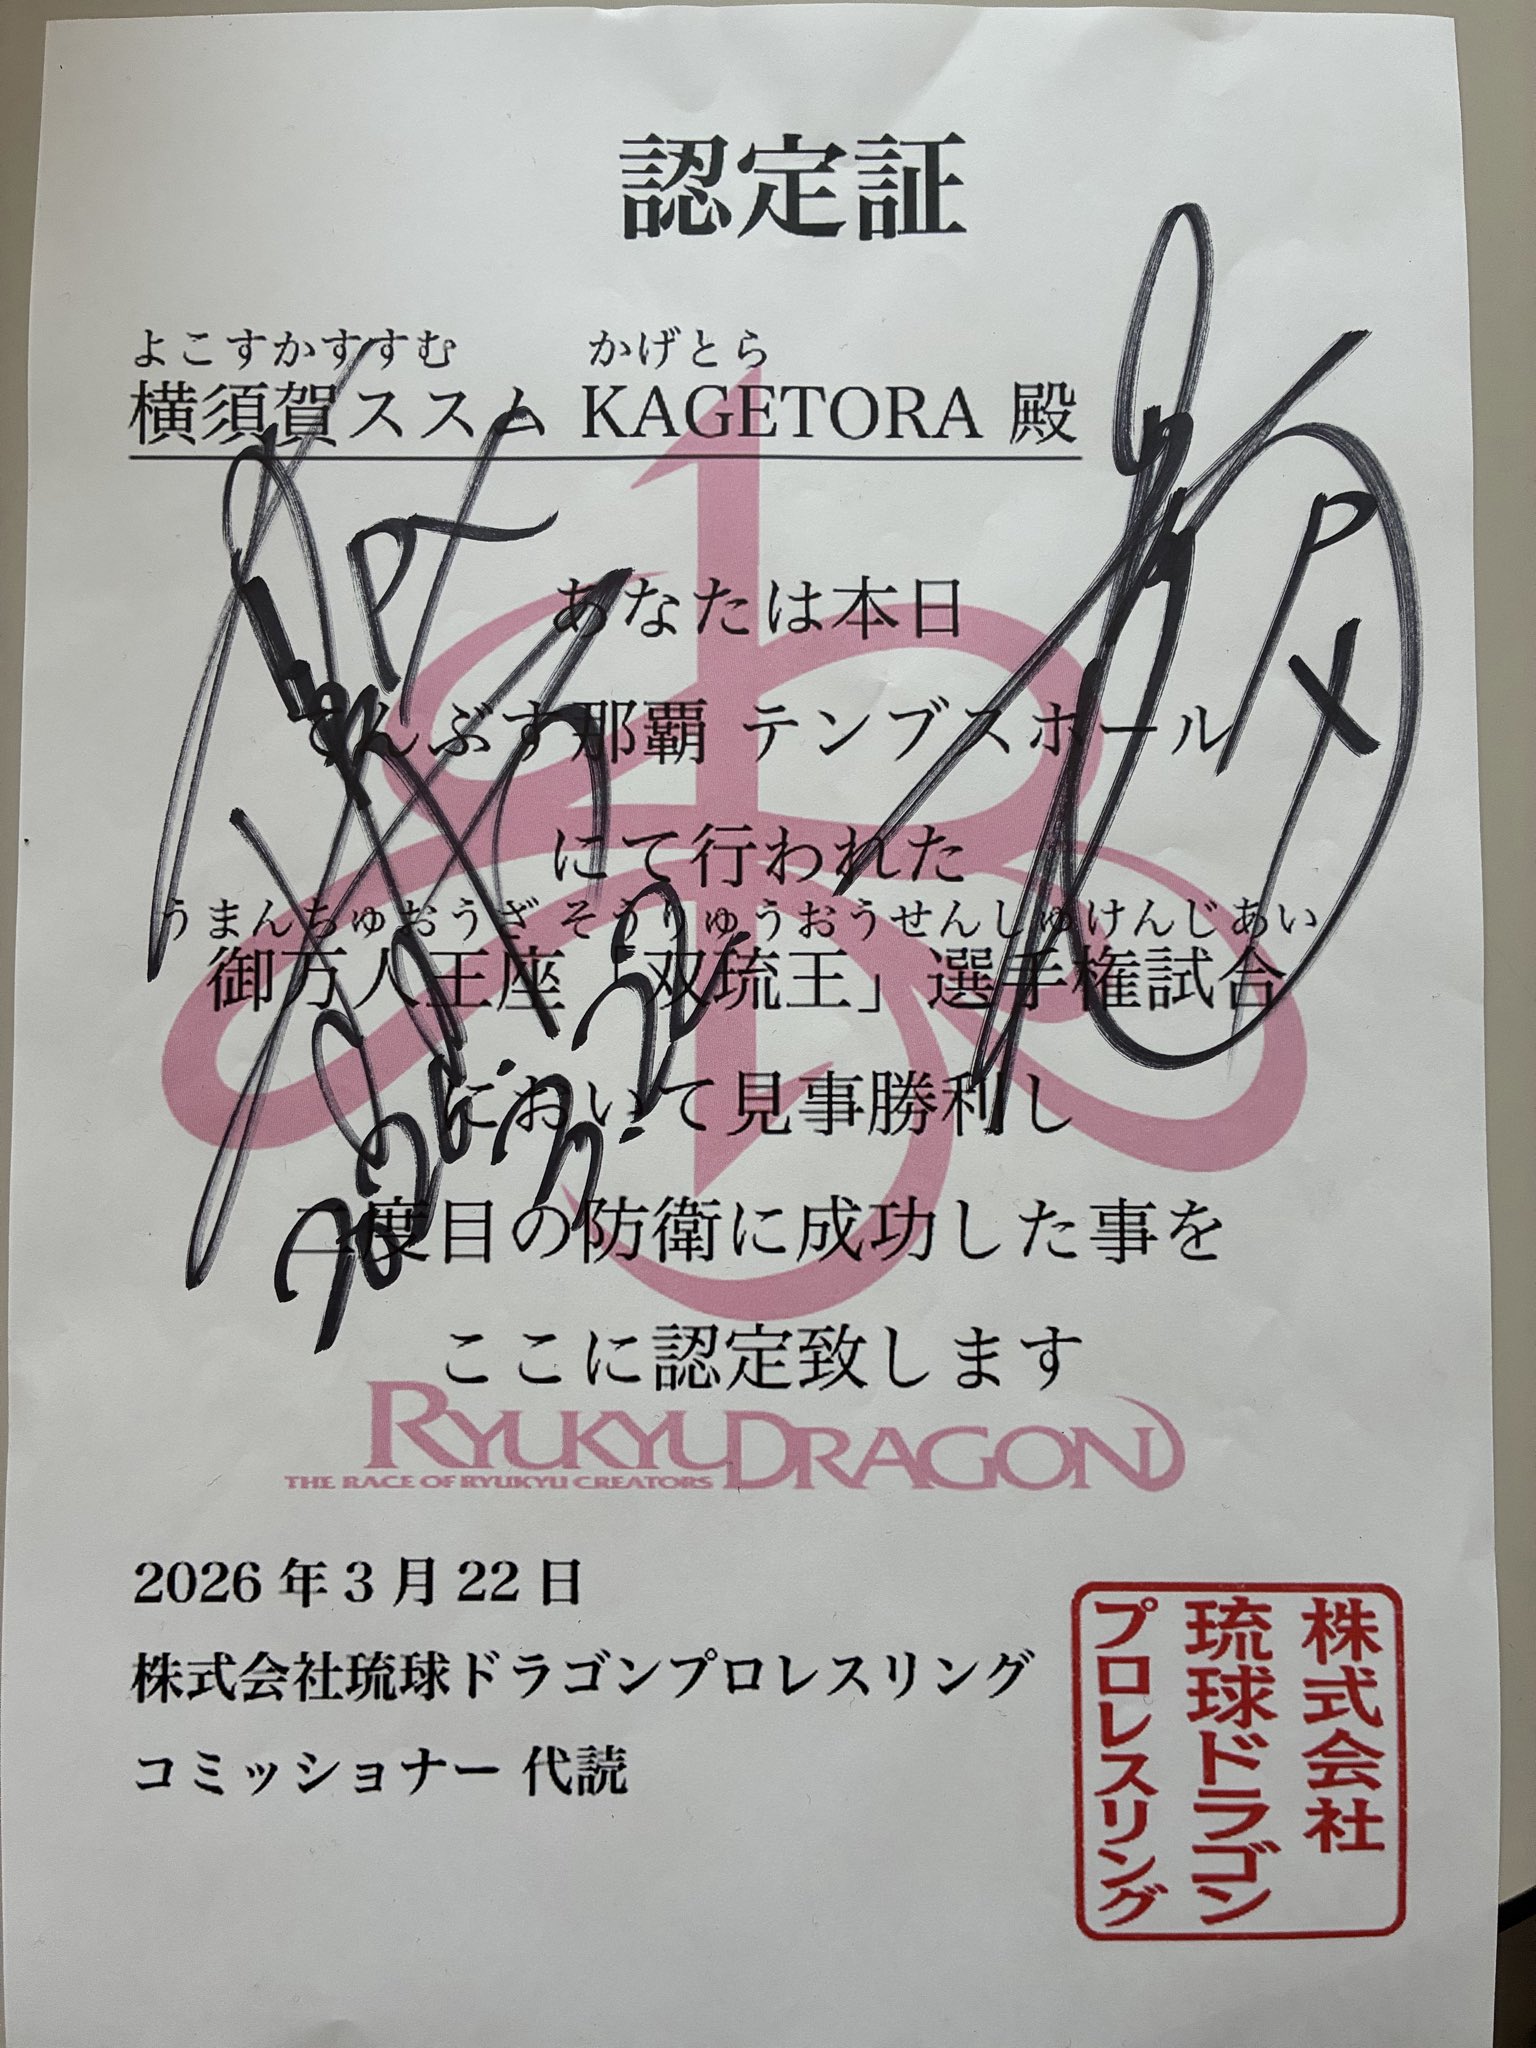 認定証
よこすかすすむ かげとら
横須賀ススム KAGETORA 殿
あなたは本日
てんぶす那覇 テンブスホール
にて行われた
うまんちゅおうざ そうりゅうおうせんしゅけんじあい
御万人王座「双琉王」選手権試合
において見事勝利し
二度目の防衛に成功した事を
ここに認定致します
RYUKYU DRAGON
THE RACE OF RYUKYU CREATORS
2026.3.22
2026年3月22日
株式会社琉球ドラゴンプロレスリング
コミッショナー 代読
株式会社
琉球ドラゴン
プロレスリング